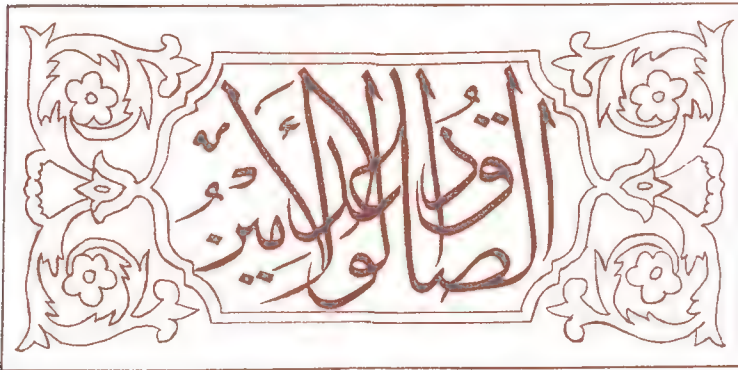 الصادق الوعد الأمين